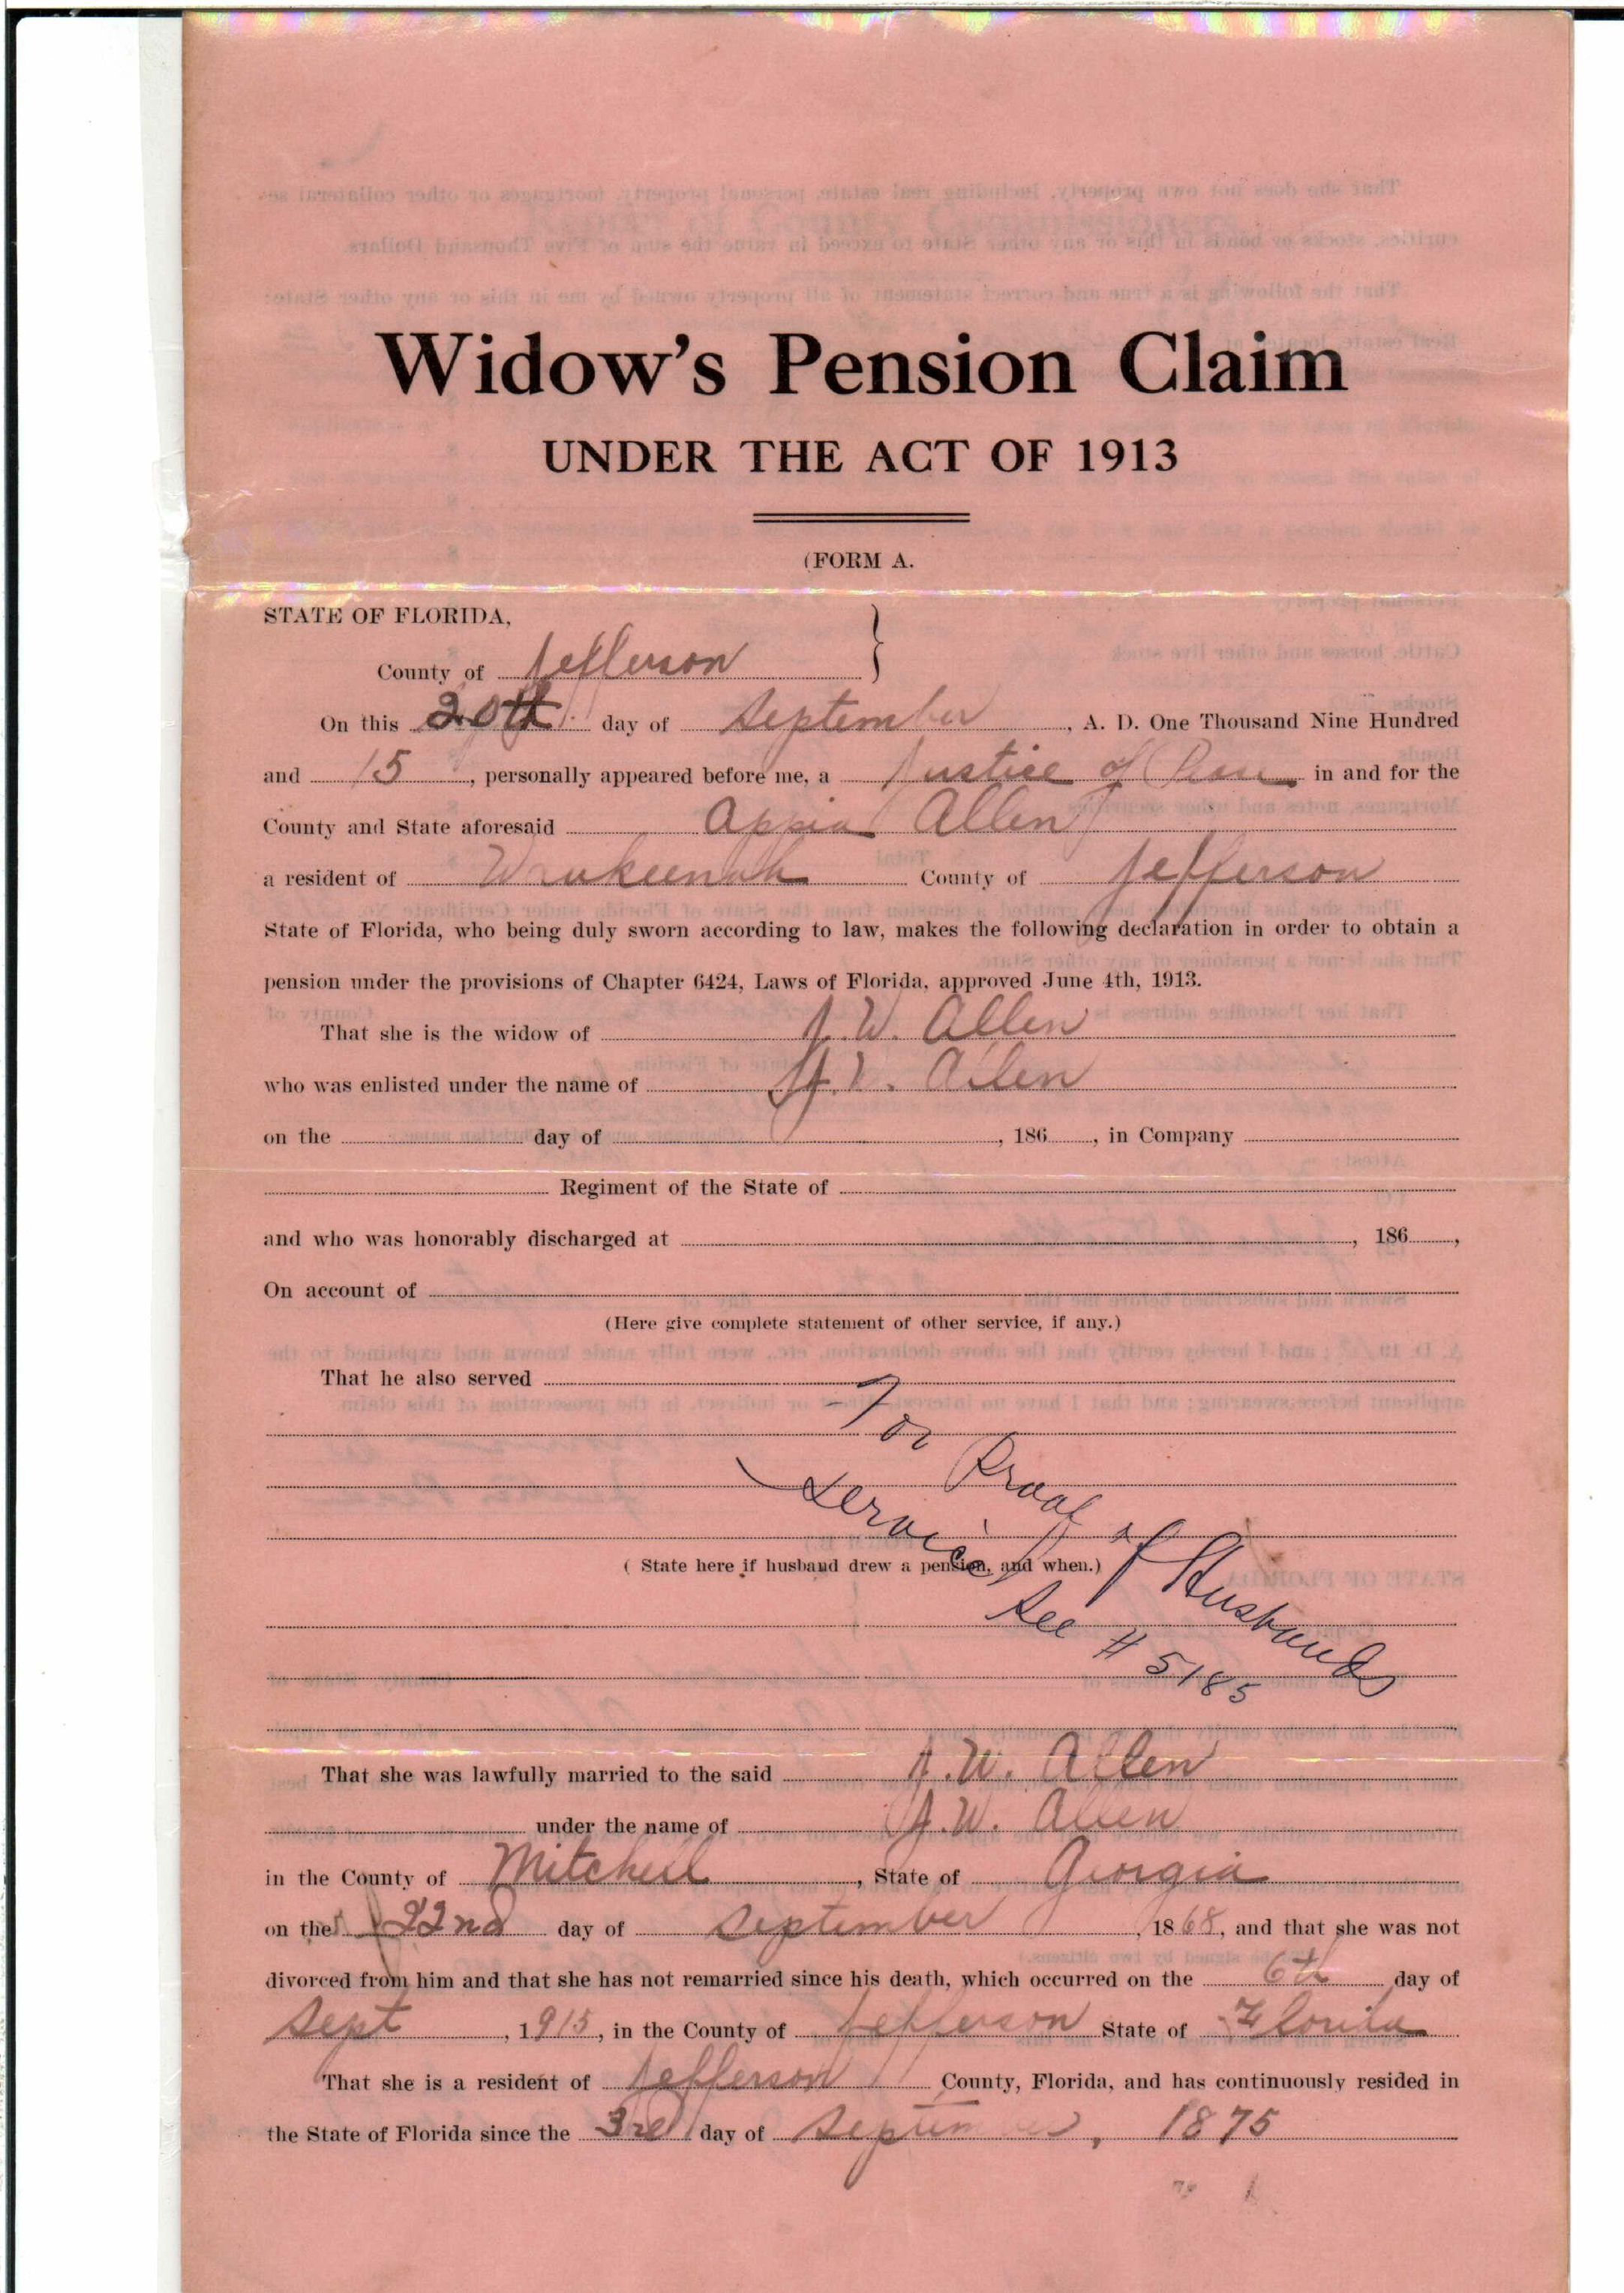 Widow's Pension Claim
UNDER THE ACT OF 1913
(FORM A.
STATE OF FLORIDA,
County of Jefferson
On this 20th day of September, A. D. One Thousand Nine Hundred
and 15, personally appeared before me, a Justice of Peace in and for the
County and State aforesaid Appia Allen
a resident of Waukeenah County of Jefferson
State of Florida, who being duly sworn according to law, makes the following declaration in order to obtain a
pension under the provisions of Chapter 6424, Laws of Florida, approved June 4th, 1913.
That she is the widow of J. W. Allen
who was enlisted under the name of Allen
on the day of , 186 , in Company
Regiment of the State of
and who was honorably discharged at , 186 ,
On account of
(Here give complete statement of other service, if any.)
That he also served
For Proof of Husbands
Service
( State here if husband drew a pension, and when.)
See # 5185
That she was lawfully married to the said J. W. Allen
under the name of J. W. Allen
in the County of Mitchell, State of Georgia
on the 22nd day of September, 1868, and that she was not
divorced from him and that she has not remarried since his death, which occurred on the 6th day of
Sept, 1915, in the County of Jefferson State of Florida
That she is a resident of Jefferson County, Florida, and has continuously resided in
the State of Florida since the 3rd day of September, 1875